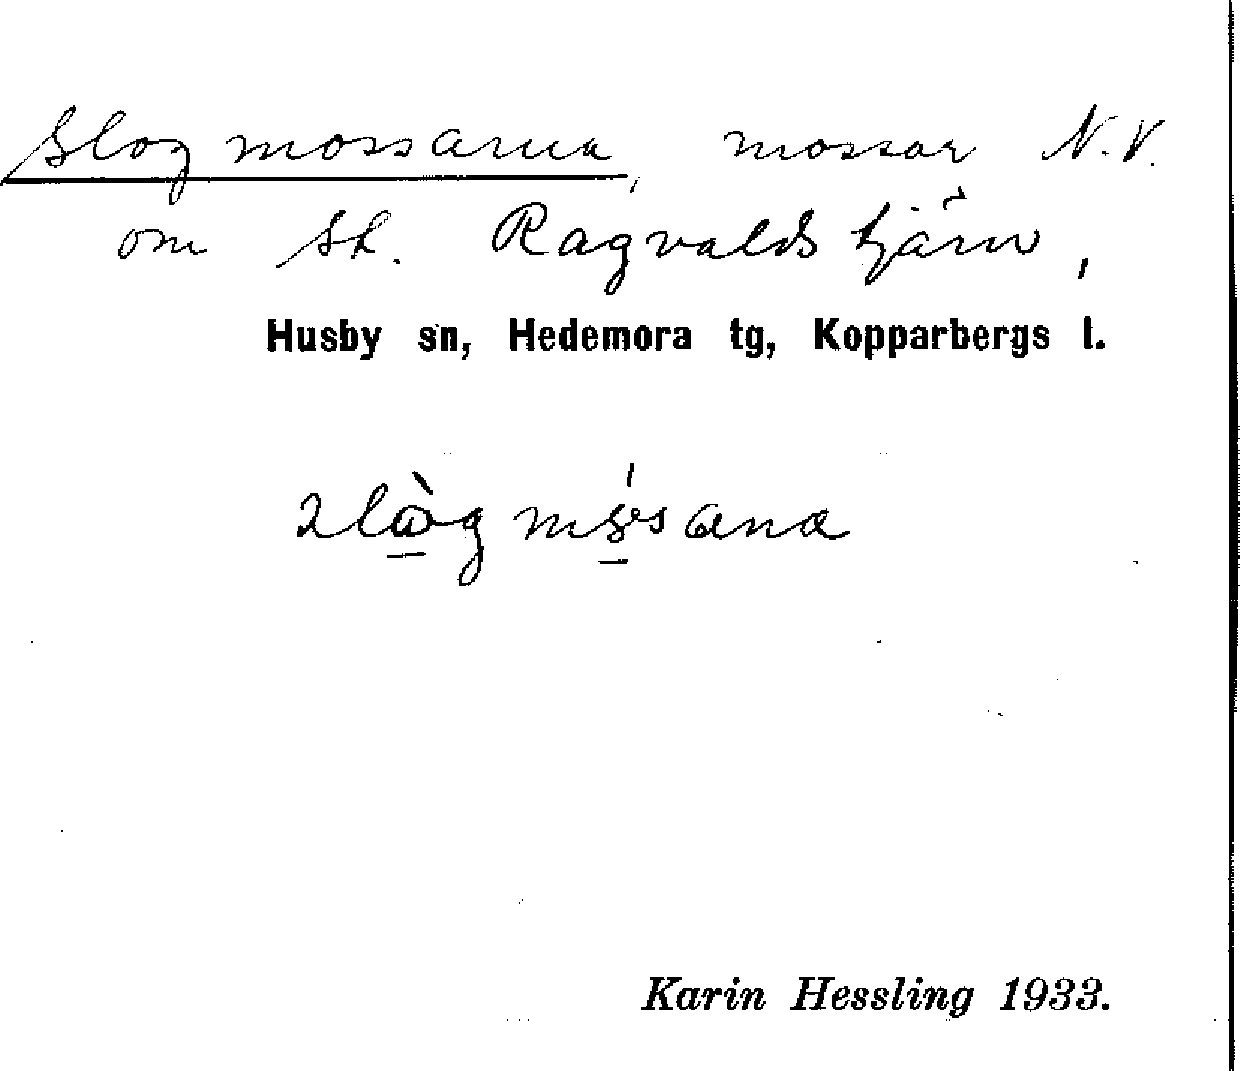 Slogmossarna, mossar N.V.
om St. Ragvalds tjärn,
Husby sn, Hedemora tg, Kopparbergs l.
Karin Hessling 1933.